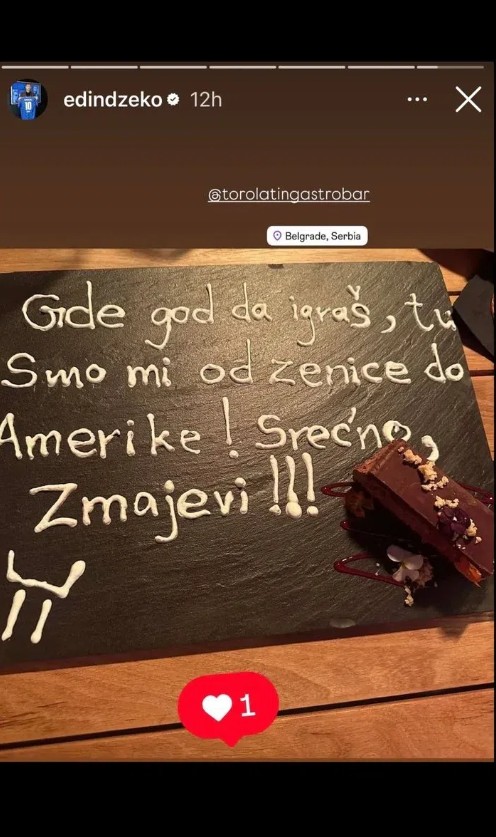 edindzeko 12h
@torolatingastrobar
Belgrade, Serbia
Gde god da igraš, tu
Smo mi od zenice do
Amerike! Srećno,
Zmajevi!!!
1